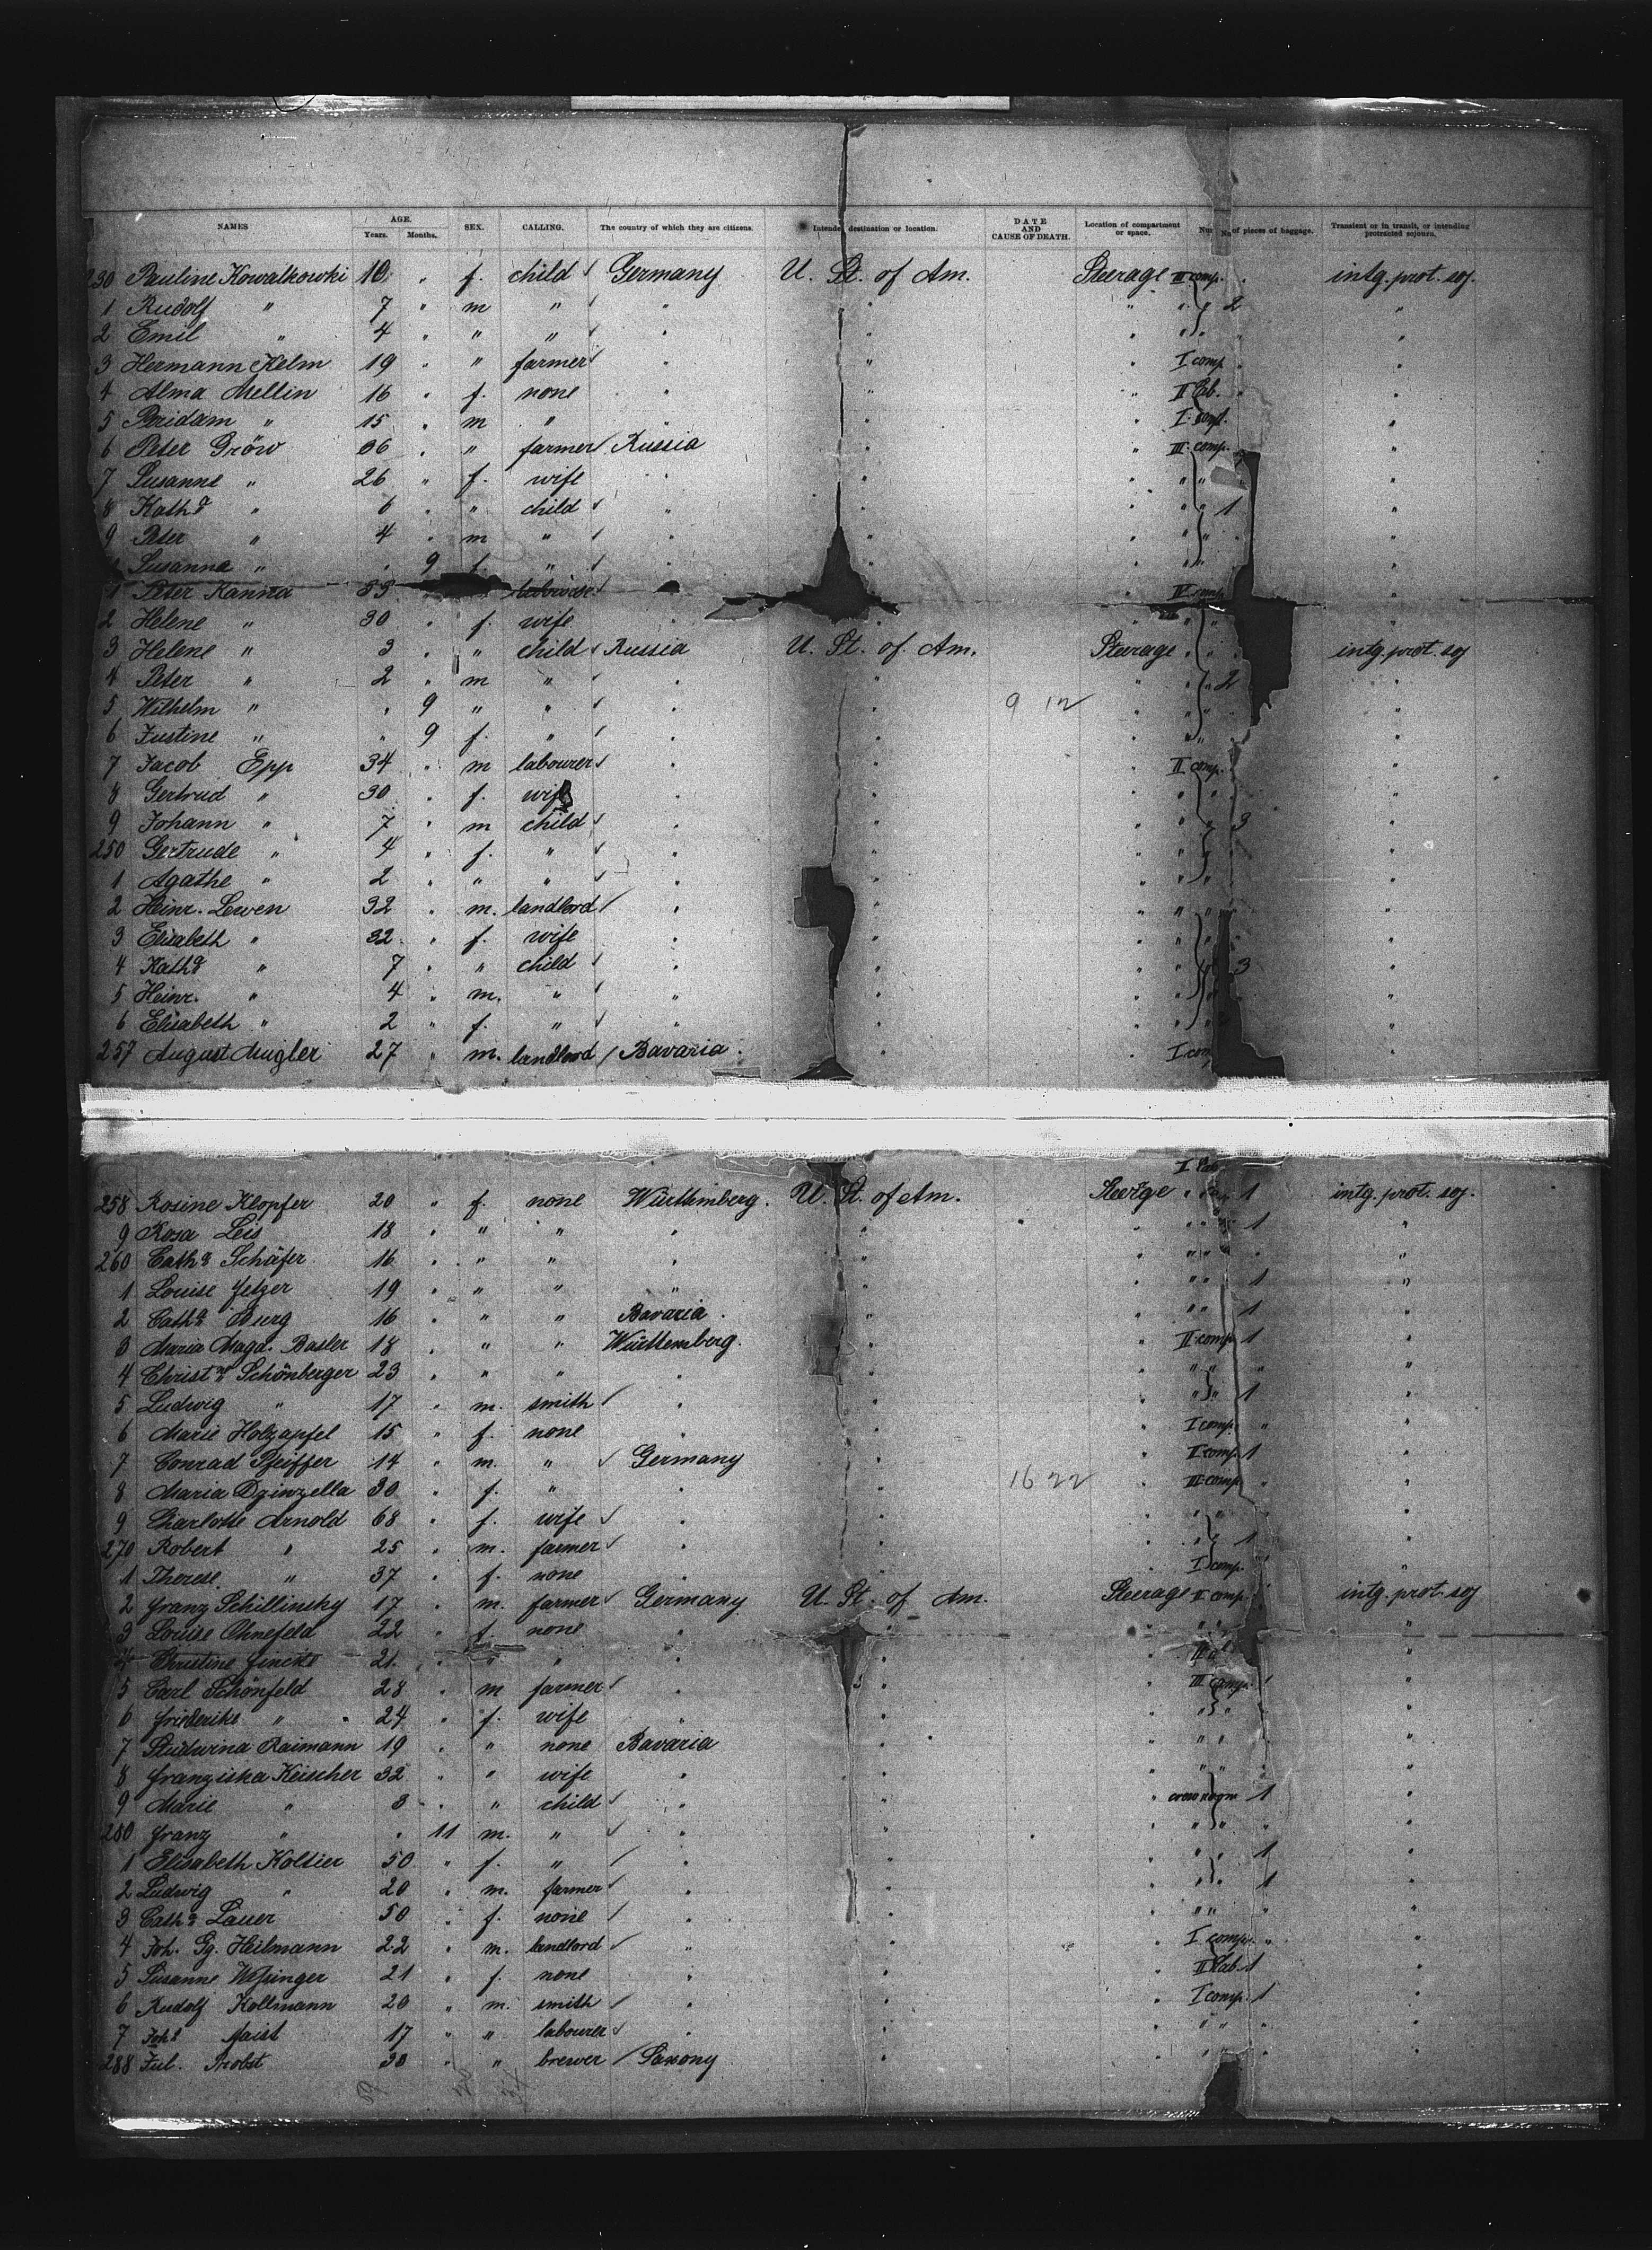 NAMES AGE. Years. Months. SEX. CALLING. The country of which they are citizens. Intended destination or location. DATE AND CAUSE OF DEATH. Location of compartment or space. of pieces of baggage. Transient or in transit, or intending protracted sojourn.
230 Pauline Kowalkowski 10 " f. child Germany U. St. of Am. Steerage III comp. " intg. prot. soj.
1 Rudolf " 7 " m " " " " " 2 "
2 Emil " 4 " " " " " " " "
3 Hermann Kelm 19 " " farmer " " " I comp. "
4 Alma Mellin 16 " f. none " " " II Cab. "
5 " 15 " m " " " " I comp. "
6 Peter Gröw 36 " " farmer Russia " " III comp. "
7 Susanne " 26 " f. wife " " " " "
8 Kath. " 6 " " child " " " " 1 "
9 Peter " 4 " m " " " " " "
Susanna " " 9 f. " " " " " "
1 Peter Kanna 33 labourer " " IV comp. "
2 Helene " 30 " f. wife " " " " "
3 Helene " 3 " " child Russia U. St. of Am. Steerage " " intg. prot. soj
4 Peter " 2 " m " " " " " 2 "
5 Wilhelm " " 9 " " " " 9 12 " " "
6 Justine " " 9 f. " " " " " "
7 Jacob Epp 34 " m labourer " " " II comp. "
8 Gertrud " 30 " f. wife " " " " "
9 Johann " 7 " m child " " " " 3 "
250 Gertrude " 4 " f. " " " " " "
1 Agathe " 2 " " " " " " " "
2 Heinr. Lewen 32 " m. landlord " " " " "
3 Elisabeth " 32 " f. wife " " " " "
4 Kath. " 7 " " child " " " " 3 "
5 Heinr. " 4 " m. " " " " " "
6 Elisabeth " 2 " f. " " " " " "
257 August Mugler 27 " m. landlord Bavaria " " I com "
I Cab.
258 Rosine Klopfer 20 " f. none Württemberg. U. St. of Am. Steerage " 1 intg. prot. soj.
9 Rosa Leis 18 " " " " " " " 1 "
260 Cath. Schäfer 16 " " " " " " " " "
1 Louise Fetzer 19 " " " " " " " 1 "
2 Cath. Burg 16 " " " Bavaria " " " 1 "
3 Maria Magd. Basler 18 " " " Württemberg. " " II comp. 1 "
4 Christ. Schönberger 23 " " " " " " " " "
5 Ludwig " 17 " m. smith " " " " 1 "
6 Marie Holzapfel 15 " f. none " " " I comp. " "
7 Conrad Pfeiffer 14 " m. " Germany " " II comp. 1 "
8 Maria Dzinzella 30 " f. " " " 16 22 " III comp. " "
9 Charlotte Arnold 68 " f. wife " " " " "
270 Robert " 25 " m. farmer " " " " 1 "
1 Therese " 37 " f. none " " " I comp. "
2 Franz Schillinsky 17 " m. farmer Germany U. St. of Am. Steerage II comp. intg. prot. soj
3 Louise Ohnefeld 22 " f. none " " " " "
4 Christine 21 " " " " " " "
5 Carl Schönfeld 28 " m farmer " " " III comp. 1 "
6 Friederike " 24 " f. wife " " " " "
7 Raimann 19 " " none Bavaria " " " "
8 Franziska Keischer 32 " " wife " " " " " "
9 Marie " 3 " " child " " " 1 "
280 Franz " " 11 m. " " " " " " "
1 Elisabeth Koltier 50 " f. " " " " " 1 "
2 Ludwig " 20 " m. farmer " " " " 1 "
3 Cath. Lauer 50 " f. none " " " " " "
4 Joh. Gg. Heilmann 22 " m. landlord " " " I comp. " "
5 Susanne 21 " f. none " " " II Cab. 1 "
6 Rudolf Kollmann 20 " m. smith " " " I comp. 1 "
7 Joh. Faist 17 " " labourer " " " " " "
288 Jul. Probst 30 " " brewer Saxony " " " " "